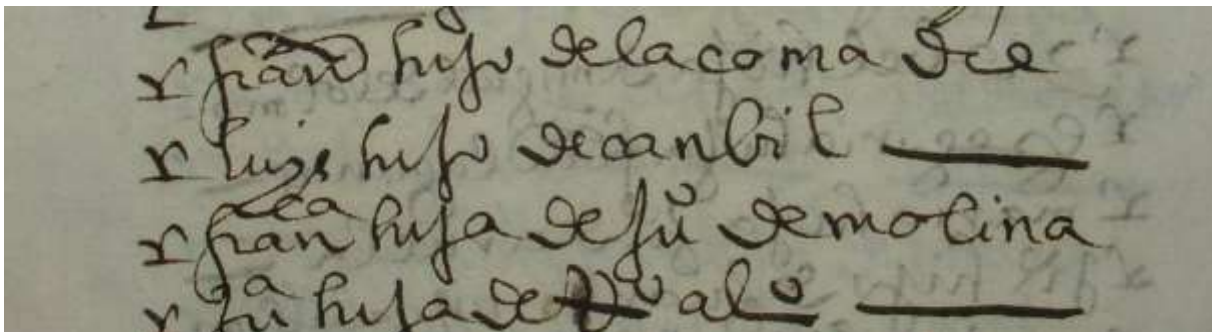 fran hijo de la coma dre
luys hijo de canbil
fran ca hija de ju o de molina
ju a hija de